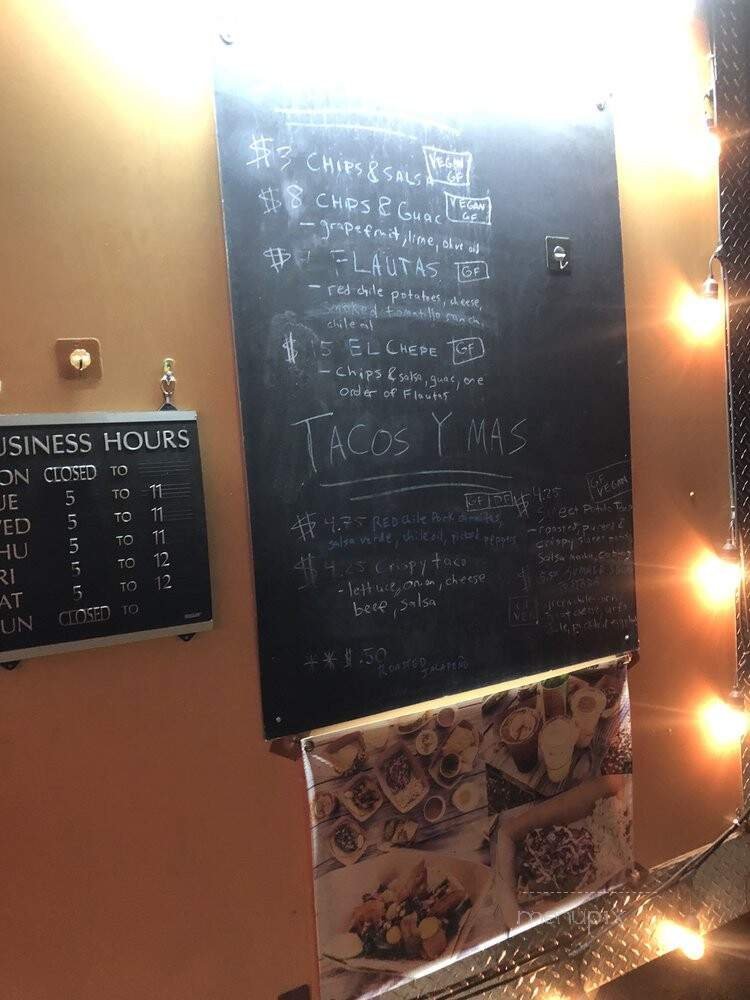 $3 CHIPS & SALSA VEGAN GF
$8 CHIPS & GUAC VEGAN GF
- grapefruit, lime, olive oil
$ FLAUTAS GF
- red chile potatoes, cheese,
smoked tomatillo ranch,
chile oil
$ 5 EL CHEPE GF
- Chips & salsa, guac, one
order of Flautas
TACOS Y MAS
$4.75 RED Chile Pork
salsa verde, chile oil, pickled peppers
$4.25 Crispy taco
- lettuce, onion, cheese
beef, salsa
** $.50 ROASTED JALAPEÑO
$4.25 GF VEGAN
Sweet Potato Taco
- roasted, pureed &
crispy sweet
USINESS HOURS
ON CLOSED TO
UE 5 TO 11
ED 5 TO 11
HU 5 TO 11
RI 5 TO 12
AT 5 TO 12
UN CLOSED TO
menupix